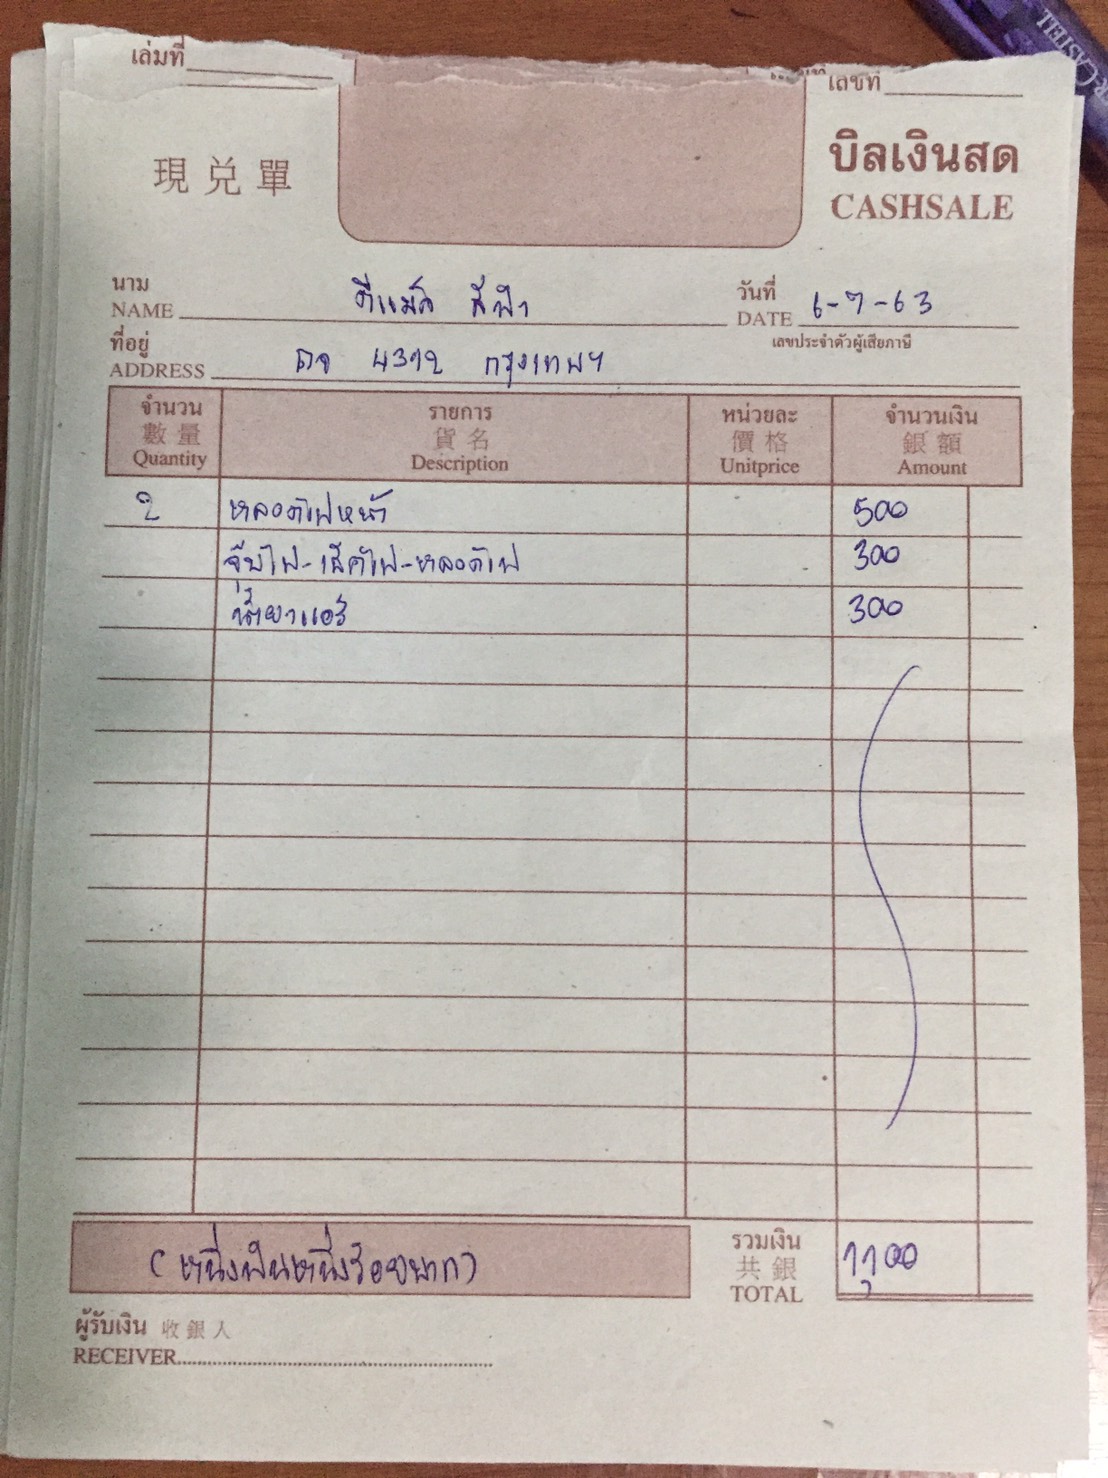 เล่มที่
เลขที่
現兑單
บิลเงินสด
CASHSALE
นาม
NAME ดีแม็ก สีฟ้า
วันที่
DATE 6-7-63
ที่อยู่
ADDRESS 4312 กรุงเทพฯ
เลขประจำตัวผู้เสียภาษี
จำนวน รายการ หน่วยละ จำนวนเงิน
數量 貨名 價格 銀額
Quantity Description Unitprice Amount
2 หลอดไฟหน้า 500
จุ๊บไฟ-เช็คไฟ-หลอดไฟ 300
น้ำยาแอร์ 300
(หนึ่งพันหนึ่งร้อยบาท)
รวมเงิน
共銀
TOTAL 1,100
ผู้รับเงิน 收銀人
RECEIVER